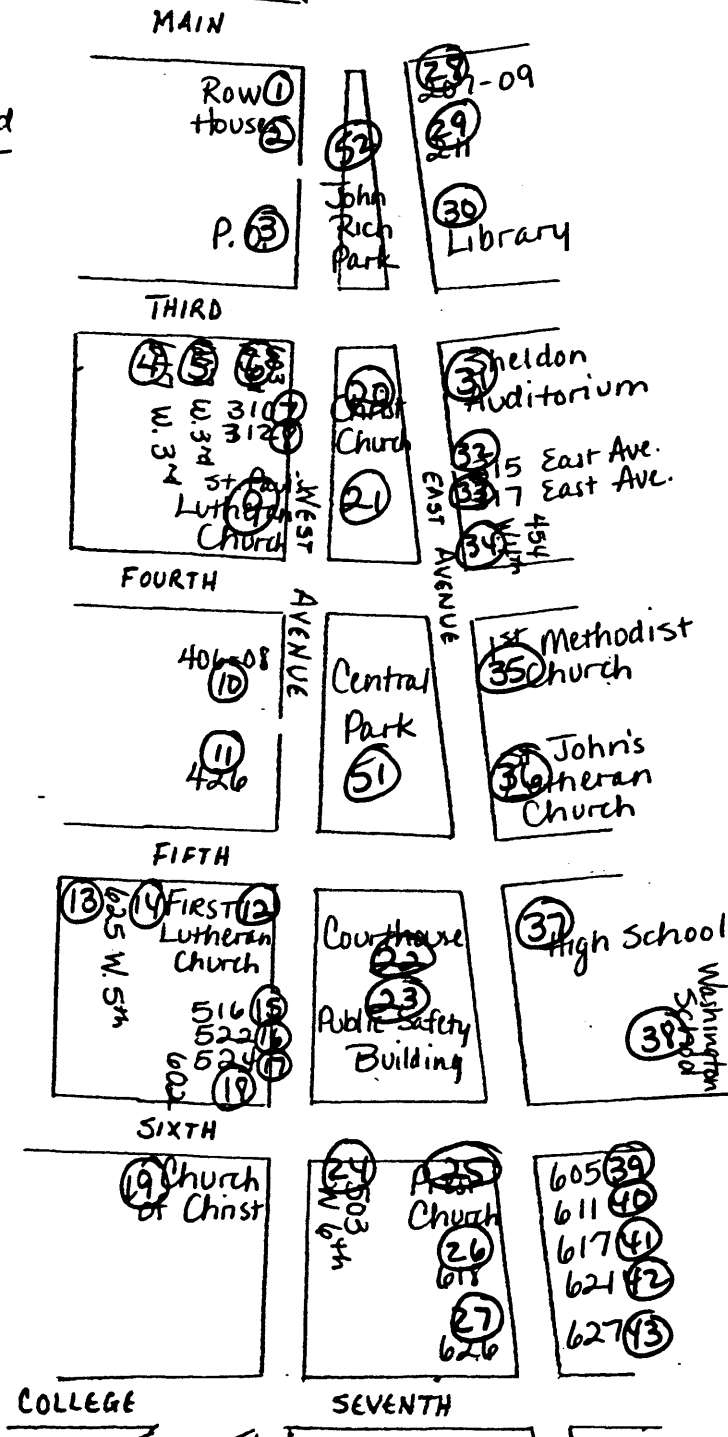 MAIN
d
Row 1
House 2
P. 3
52
John
Rich
Park
28
207-09
29
211
30
Library
THIRD
4
5
6
W. 3rd
W. 3rd
310 7
312 8
St. Paul's
Lutheran 9
Church
20
Christ
Church
21
WEST AVENUE
EAST AVENUE
31
Sheldon
Auditorium
32
315 East Ave.
33
317 East Ave.
34
454
FOURTH
406-08
10
11
426
Central
Park
51
1st Methodist
35 Church
36 John's
Lutheran
Church
FIFTH
13
625 W. 5th
14
FIRST 12
Lutheran
Church
516 15
522 16
524 17
602 18
Courthouse
22
23
Public Safety
Building
37
High School
38
Washington
School
SIXTH
19 Church
of Christ
24
503
W 6th
25
Church
26
618
27
626
605 39
611 40
617 41
621 42
627 43
COLLEGE
SEVENTH